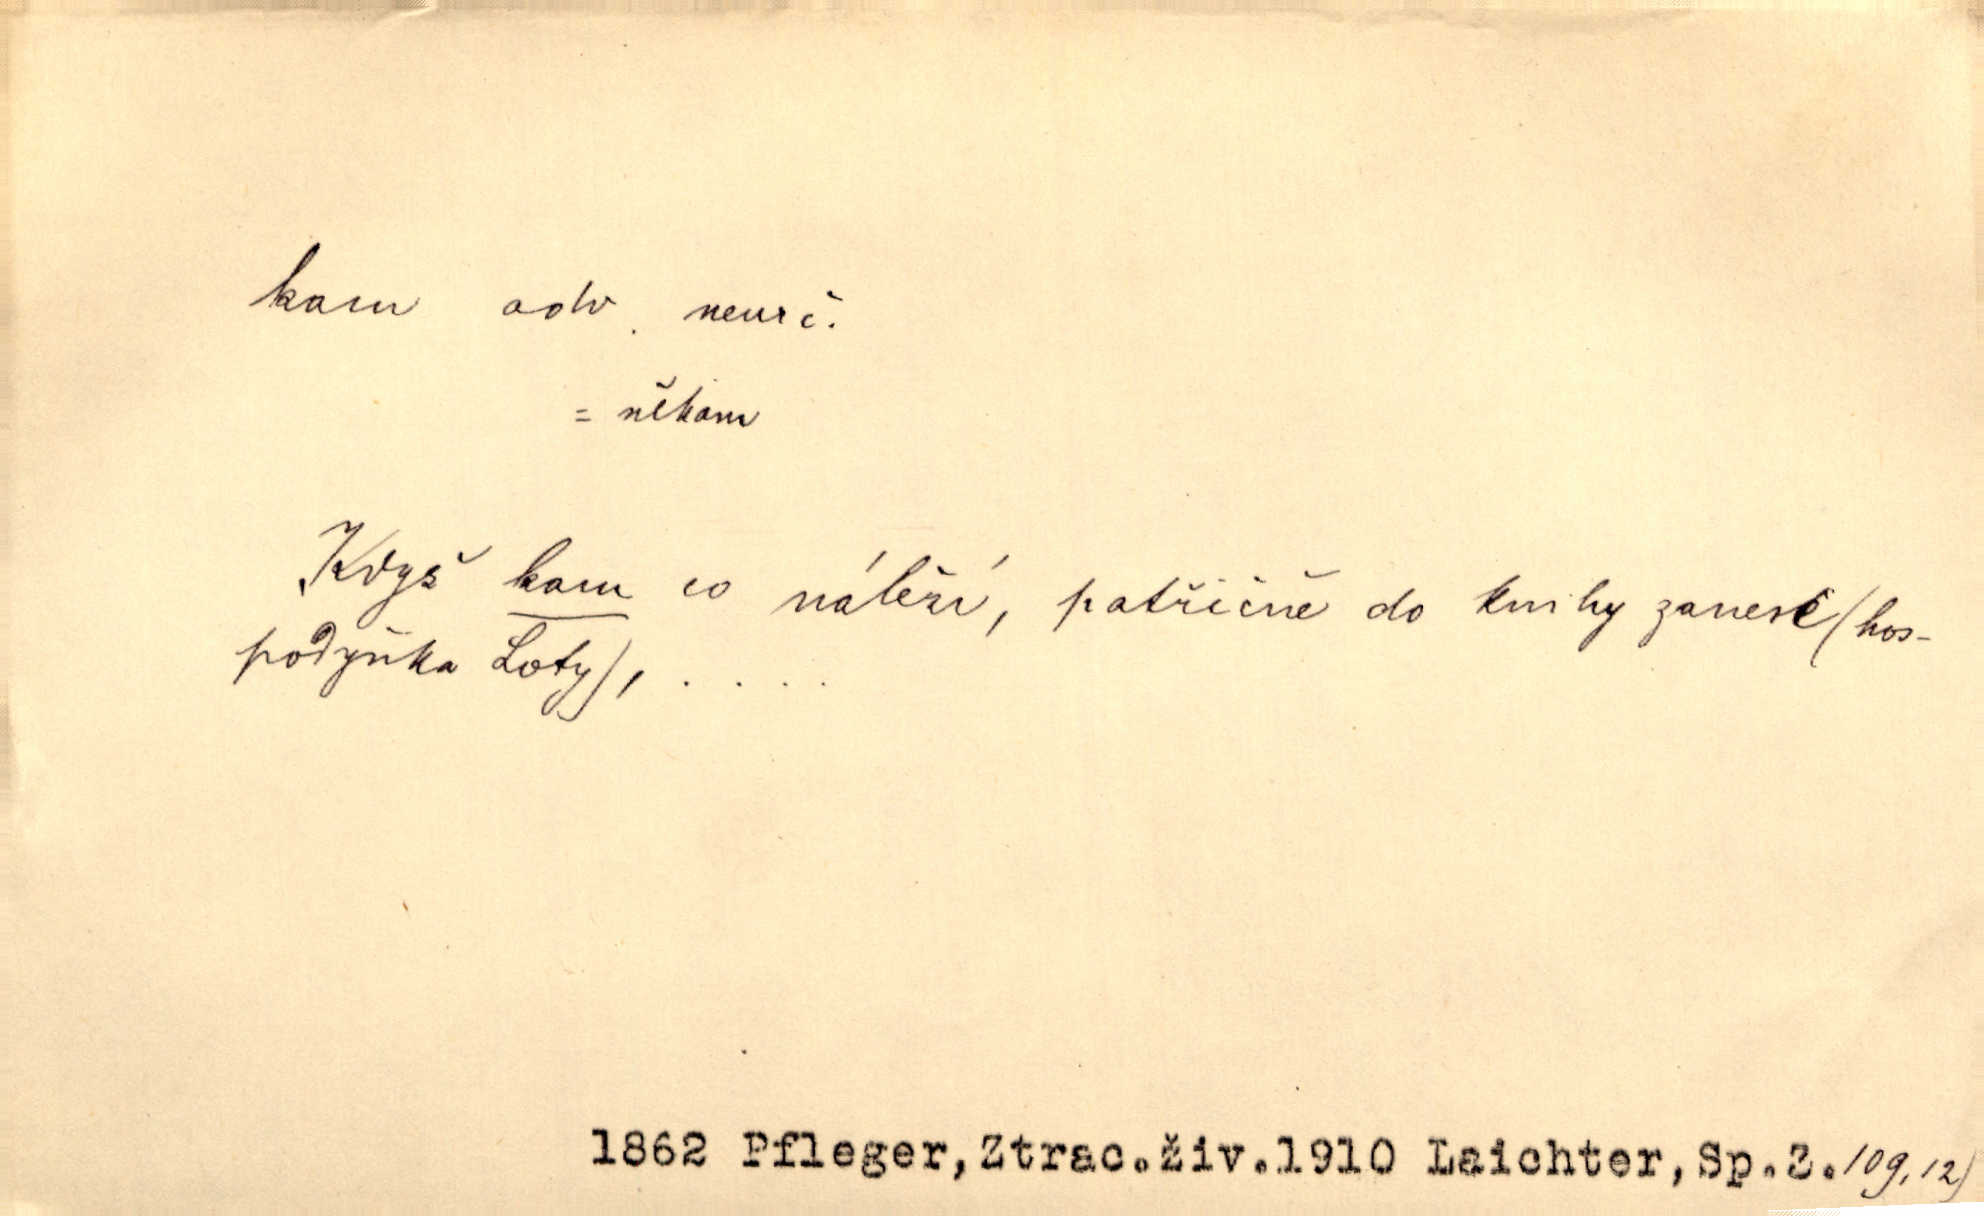 kam adv. neurč.
= někam
Když kam co náleží, patřičně do knihy zanesč (hos-
podyňka Loty), . . . .
1862 Pfleger,Ztrac.živ.1910 Laichter,Sp.2.109,12)